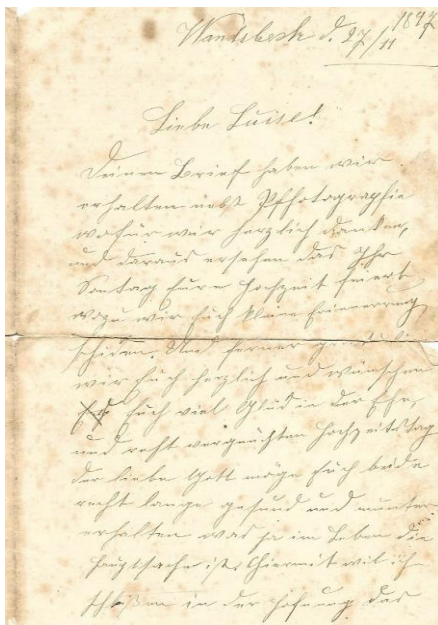 Wandsbeck d. 27/11 1897
Liebe Luise!
Deinen Brief haben wir
erhalten nebst Pfhotographie
wofür wir herzlich danken,
und daraus ersehen das Ihr
Sontag Eure Hochzeit feiert
wozu wir Euch kleine Erinnerung
schicken. Und ferner gratulieren
wir Euch herzlich und wünschen
Euch viel Glück in der Ehe,
und recht vergnügten Hochzeitstag
der liebe Gott möge Euch beide
recht lange gesund und munter
erhalten was ja im Leben die
Hauptsache ist. Hiermit will ich
schließen in der Hofnung das